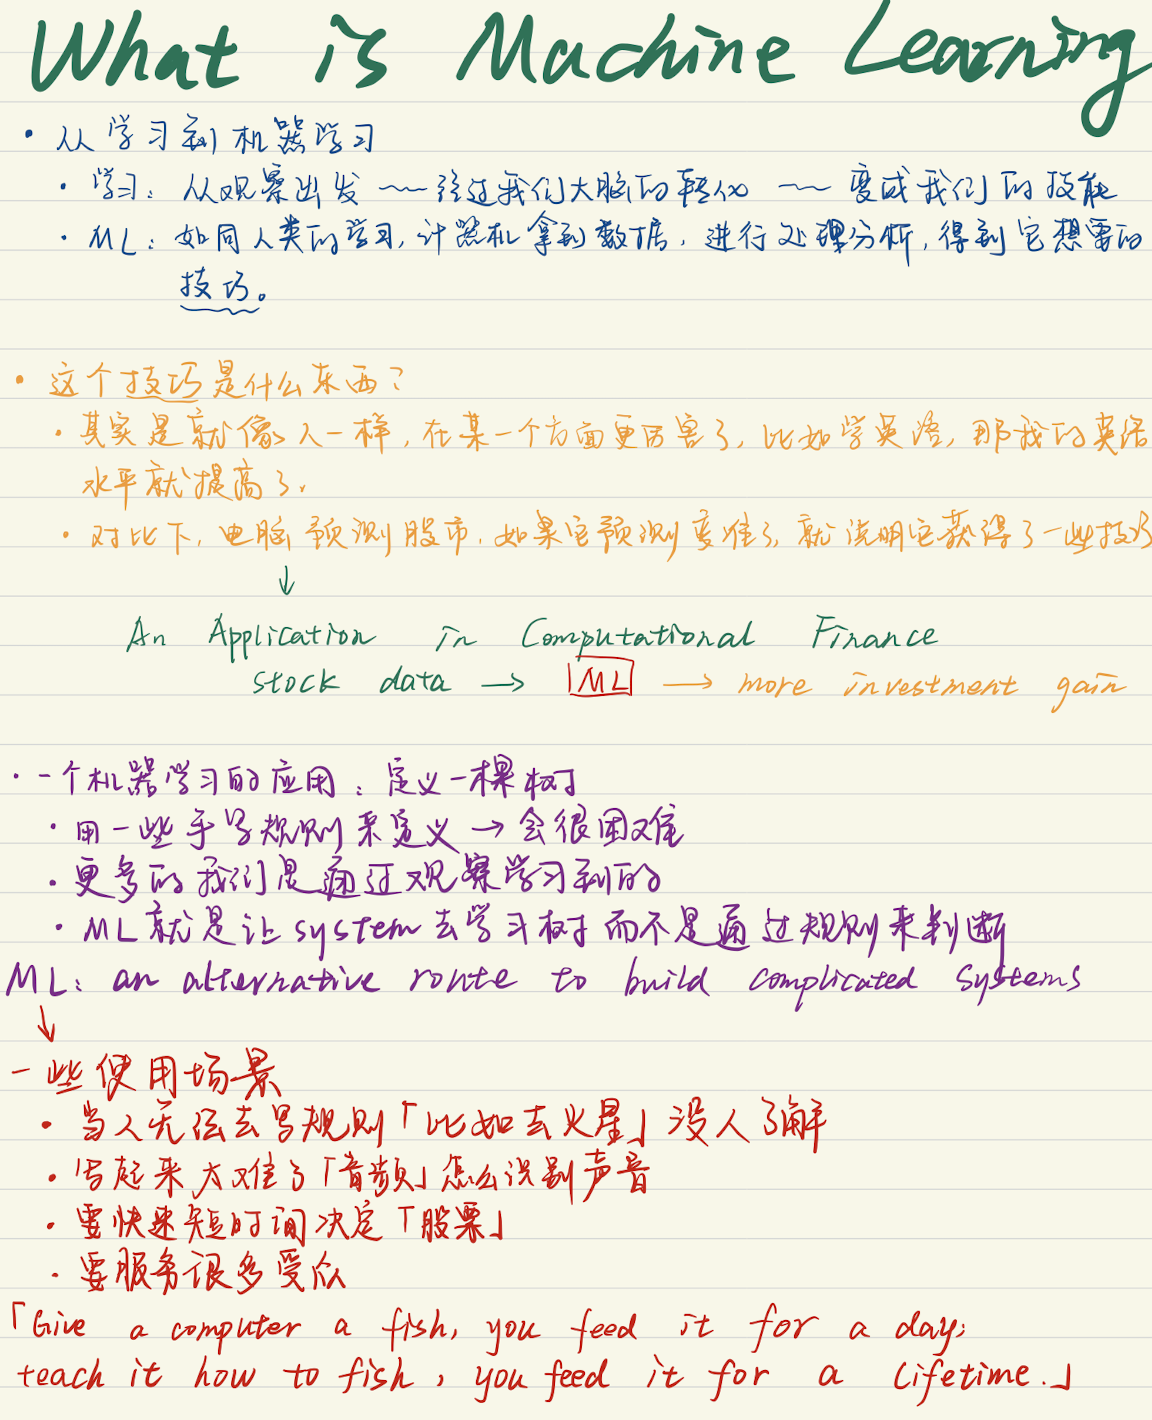 What is Machine Learning
• 从学习到机器学习
• 学习：从观察出发 —— 经过我们大脑的转化 —— 变成我们的技能
• ML：如同人类的学习，计算机拿到数据，进行处理分析，得到它想要的
技巧。
• 这个技巧是什么东西？
• 其实是就像人一样，在某一个方面更厉害了，比如学英语，那我的英语
水平就提高了。
• 对比下，电脑预测股市，如果它预测变准了，就说明它获得了一些技巧
↓
An Application in Computational Finance
stock data → ML → more investment gain
• 一个机器学习的应用：定义一棵树
• 用一些手写规则来定义 → 会很困难
• 更多的我们是通过观察学习到的
• ML就是让system去学习树而不是通过规则来判断
ML: an alternative route to build complicated systems
↓
一些使用场景
• 当人无法去写规则「比如去火星」没人了解
• 写起来太难了「音频」怎么识别声音
• 要快速短时间决定「股票」
• 要服务很多受众
「Give a computer a fish, you feed it for a day;
teach it how to fish, you feed it for a lifetime.」